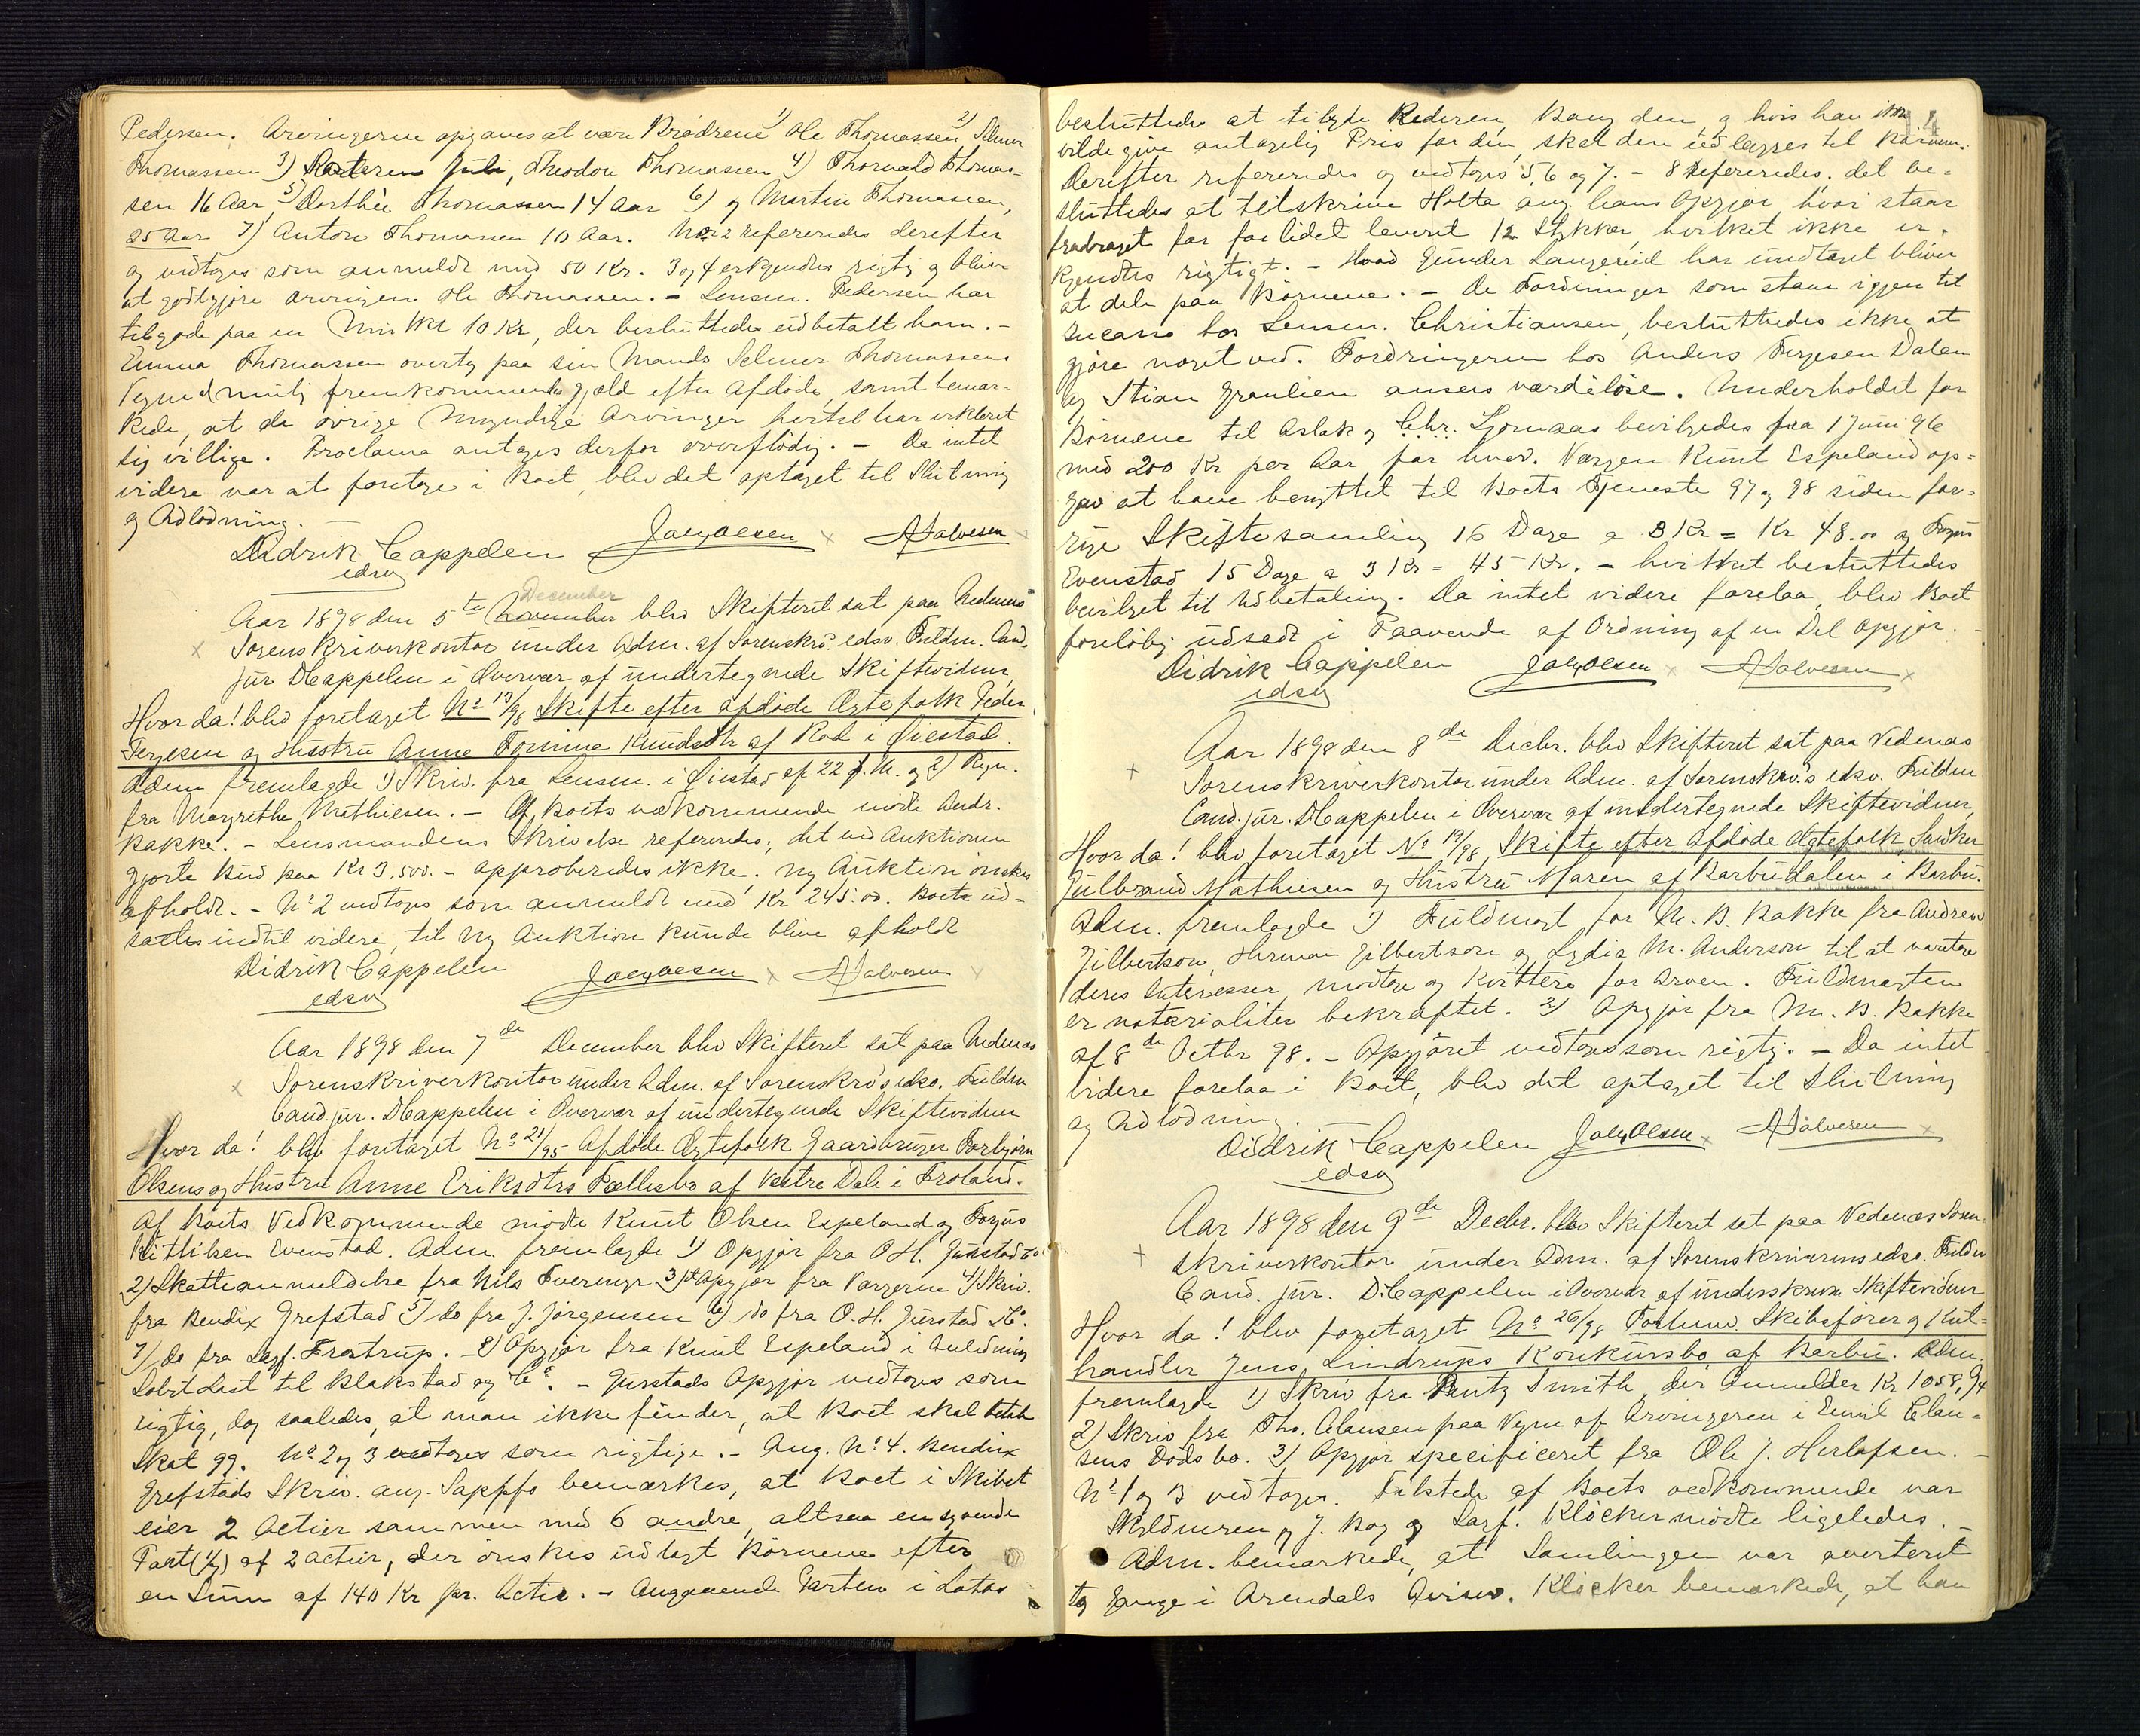 Pedersen. Arvingerne opgaves at være Brødrene 1) Ole Thomassen 2) Selmer
Thomassen 3) Theodor Thomassen 4) Thorvald Thomas-
sen 16 Aar, 5) Dorthea Thomassen 14 Aar 6) og Martin Thomassen,
25 Aar 7) Anton Thomassen 10 Aar. No 2 refereredes derefter
og vedtoges som anmeldt med 50 Kr. 3 og 4 erkjendtes rigtig og bliver
at godtgjøre Arvingen Ole Thomassen. – Lensm. Pedersen har
tilgode paa en 10 Kr, der besluttedes udbetalt ham. –
Emma Thomassen overtog paa sin Mands Selmer Thomassens
Vegne mulig fremkommende Gjeld efter Afdøde, samt bemær-
kede, at de øvrige Myndige Arvinger hertil har erklæret
sig villige. Proclama antages derfor overflødig. – Da intet
videre var at foretage i Boet, blev det optaget til Slutning
og Udlodning. –
Didrik Cappelen Jac. Olesen x AHalvorsen x
edsv
Aar 1898 den 5te November December blev Skifteret sat paa Nedenæs
x Sorenskriverkontor under Adm. af Sorenskr's edsv. Fuldm. Cand.
jur D Cappelen i Overvær af undertegnede Skiftevidner,
Hvor da! blev foretaget No 13/98 Skifte efter afdøde Ægtefolk Peder
Terjesen og Hustru Anne Tomine Knudsdtr af Rød i Øiestad.
Adm fremlagde 1) Skriv. fra Lensm. i Øiestad af 22 f. M. og 2) Regn.
fra Margrethe Mathiesen. – Af Boets vedkommende mødte Andr.
Bakke. – Lensmandens Skrivelse refereredes; det ved Auktionen
gjorte Bud paa Kr 3.500. – approberedes ikke; ny Auktion ønskes
afholdt. – No 2 vedtoges som anmeldt med Kr 245.00. Boets ud-
sattes indtil videre, til ny Auktion kunde blive afholdt
Didrik Cappelen Jac. Olesen x AHalvorsen x
edsv
Aar 1898 den 7de December blev Skifteret sat paa Nedenæs
x Sorenskriverkontor under Adm. af Sorenskr's edsv. Fuldm
Cand. jur. D Cappelen i Overvær af undertegnede Skiftevidner
Hvor da! blev foretaget No 21/95 Afdøde Ægtefolk Gaardbruger Torbjørn
Olsens og Hustru Anne Eriksdtrs Fællesbo af Vestre Dale i Froland.
Af Boets Vedkommende mødte Knut Olsen Espeland og Torjus
Kittilsen Evenstad. Adm. fremlagde 1) Opgjør fra O. H. Gurstad & Co
2) Skatteanmeldelse fra Nils Tveremyr 3) Opgjør fra Værgerne 4) Skriv.
fra Bendix Grefstad 5) do fra J. Jørgensen 6) do fra O. H. Gurstad & Co.
7) do fra Sagf. Frostrup. – 8) Opgjør fra Knut Espeland i Anledning
Solgt Last til Blakstad og Co. – Gurstads Opgjør vedtoges som
rigtig, dog saaledes, at man ikke finder, at Boet skal betale
Skat 99. No 2 og 3 vedtoges som rigtige. – Ang. No 4. Bendix
Grefstads Skriv. ang. Sappho bemærkes, at Boet i Skibet
eier 2 Actier sammen med 6 andre, altsaa en syvende
Part (1/7) af 2 Actier, der ønskes udlagt Børnene efter
en Sum af 140 Kr pr. Actie. – Angaaende Parten i Lotos
14
besluttedes at tilbyde Rederen, Bang den, og hvis han ikke
vilde give antagelig Pris for den, skal den udlægges til Børnene.
Derefter refereredes og vedtoges 5, 6 og 7. – 8 refereredes; det be-
sluttedes at tilskrive Holte ang. hans Opgjør, hvor staar
fradraget for forlidet leveret 12 Stykker, hvilket ikke er-
kjendtes rigtigt. – Hvad Gunder Langerud har modtaget bliver
at dele paa Børnene. – De Fordringer som staar igjen til
Incasso hos Lensm. Christiansen, besluttedes ikke at
gjøre noget ved. Fordringerne hos Anders Terjesen Dalen
og Stian Granlien ansees værdiløse. Underholdet for
Børnene til Aslak og Chr. Ljømaas bevilgedes fra 1 Juni 96
med 200 Kr per Aar for hver. Værgen Knut Espeland op-
gav at have benyttet til Boets Tjeneste 97 og 98 siden for-
rige Skiftesamling 16 Dage a 3 Kr = Kr 48.00 og Torjus
Evenstad 15 Dage a 3 Kr = 45 Kr. – hvilket besluttedes
bevilget til Udbetaling. Da intet videre forelaa, blev Boet
foreløbig udsadt i Paavente af Ordning af en Del Opgjør. –
Didrik Cappelen Jac. Olesen x AHalvorsen x
edsv
Aar 1898 den 8de Decbr. blev Skifteret sat paa Nedenæs
x Sorenskriverkontor under Adm. af Sorenskr's edsv. Fuldm
Cand. jur. D Cappelen i Overvær af undertegnede Skiftevidner,
Hvor da! blev foretaget No 19/98 Skifte efter Afdøde Ægtefolk Snedker
Gulbrand Mathiesen og Hustru Maren af Barbudalen i Barbu.
Adm. fremlagde 1) Fuldmagt for M. B. Bakke fra Andrew
Gilbertson, Herman Gilbertson og Lydia M. Anderson til at varetage
deres Interesser, modtage og kvittere for Arven. Fuldmagten
er notarialiter bekræftet. 2) Opgjør fra M. B. Bakke
af 8de Octbr 98. – Opgjøret vedtoges som rigtig. – Da intet
videre forelaa i Boet, blev det optaget til Slutning
og Udlodning.
Didrik Cappelen Jac. Olesen x AHalvorsen x
edsv
Aar 1898 den 9de Decbr. blev Skifteret sat paa Nedenæs Soren-
x skriverkontor under Adm. af Sorenskriverens edsv. Fuldm
Cand. jur. D. Cappelen i Overvær af underskrevne Skiftevidner
Hvor da! blev foretaget No 26/98 Forhenv. Skibsfører og Kul-
handler Jens Lindrups Konkursbo af Barbu. Adm.
fremlagde 1) Skriv fra Bentz Smith, der anmelder Kr 1058,94
2) Skriv fra Ths. Clausen paa Vegne af Arvingeren i Emil Clau-
sens Dødsbo. 3) Opgjør specificeret fra Ole J. Herlofsen. –
No 1 og 3 vedtoges. Tilstede af Boets vedkommende var
Skyldneren og J. Bog og Sagf. Kløcker mødte ligeledes. –
Adm. bemærkede, at Samlingen var averteret
to Gange i Arendals Aviser. Kløcker bemærkede, at han